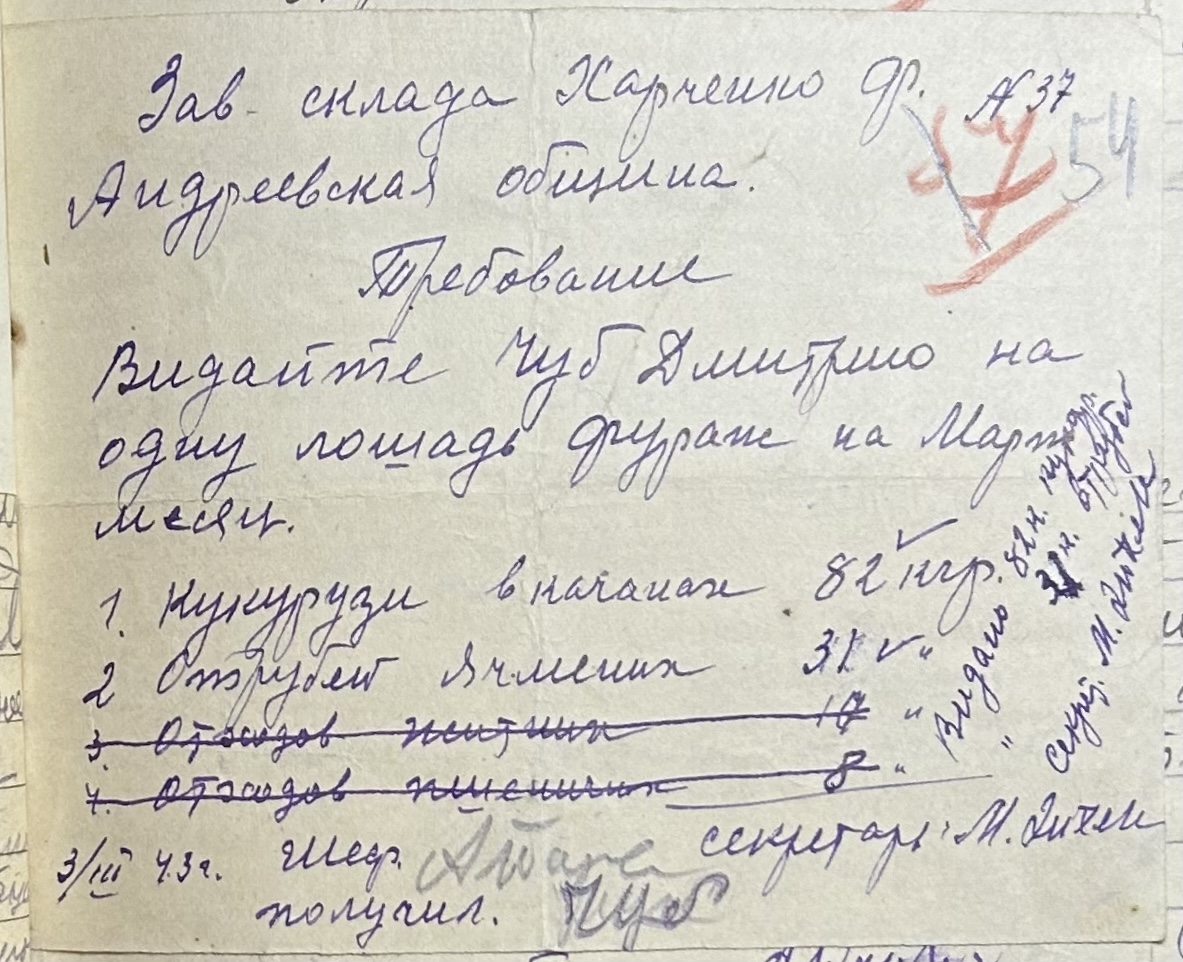 Зав. склада Харченко Фр. № 37
57 54
Андреевская община.
Требование
Видайте Чуб Дмитрию на
одну лошадь фураж на Март
месяц.
1. Кукурузи в качанах 82 кгр.
2 Отрубей Ячмених 31 "
3. Отходов житних 17 "
4. Отходов пшеничних 8 "
3/III 43г. Шеф. секретарь: М.
получил. Чуб
Видано 82 к. кукур.
" 31 к. отрубей
секрет. М.